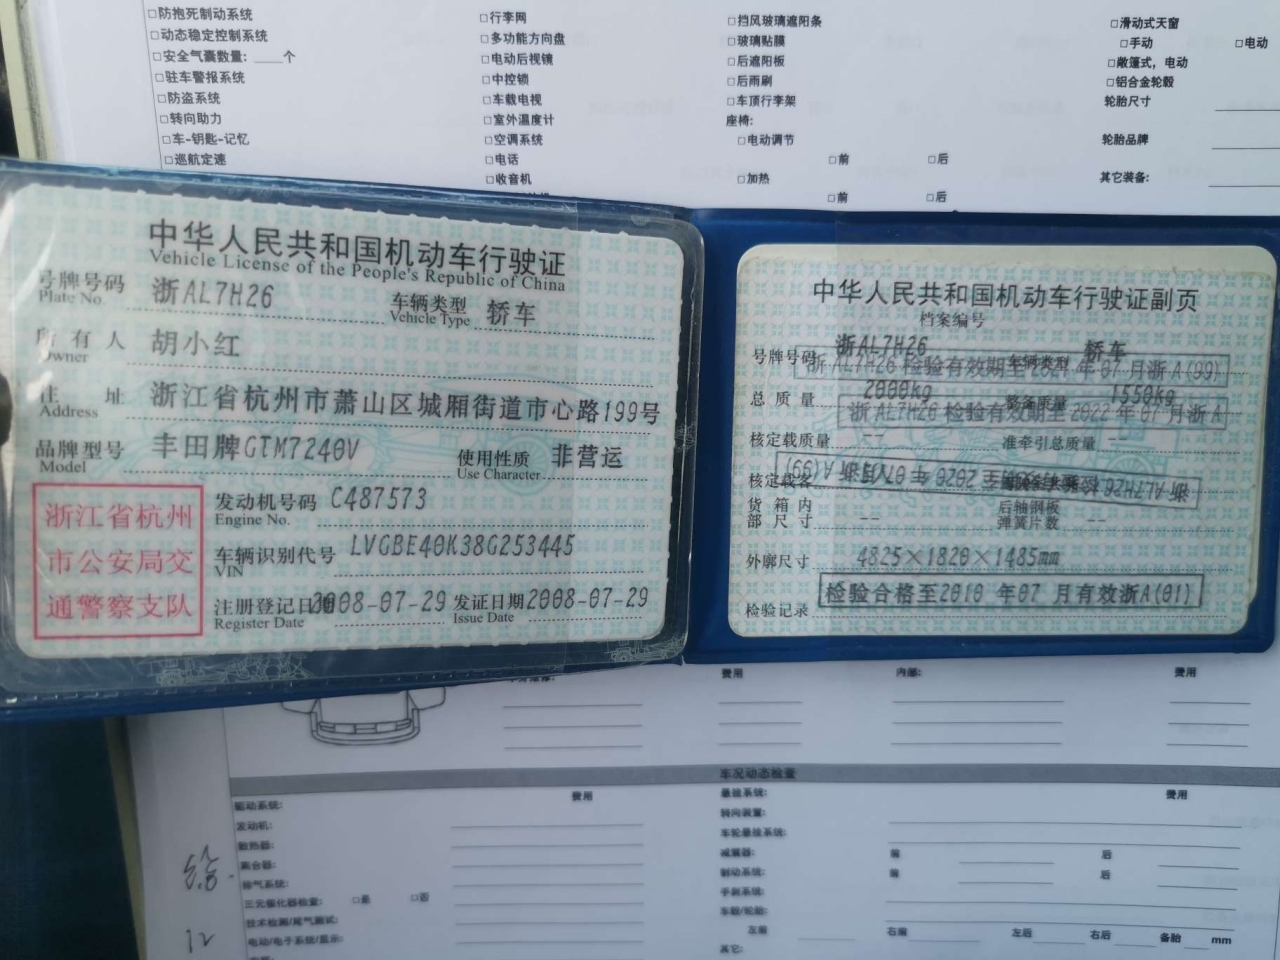 □防抱死制动系统
□动态稳定控制系统
□安全气囊数量: ____个
□驻车警报系统
□防盗系统
□转向助力
□车-钥匙-记忆
□巡航定速
□行李网
□多功能方向盘
□电动后视镜
□中控锁
□车载电视
□室外温度计
□空调系统
□电话
□收音机
□挡风玻璃遮阳条
□玻璃贴膜
□后遮阳板
□后雨刷
□车顶行李架
座椅:
□电动调节
□前 □后
□加热
□前 □后
□滑动式天窗
□手动 □电动
□敞篷式，电动
□铝合金轮毂
轮胎尺寸
轮胎品牌
其它装备:
中华人民共和国机动车行驶证
Vehicle License of the People's Republic of China
号牌号码 浙AL7H26 车辆类型 轿车
Plate No. Vehicle Type
所有人 胡小红
Owner
住址 浙江省杭州市萧山区城厢街道市心路199号
Address
品牌型号 丰田牌GTM7240V 使用性质 非营运
Model Use Character
浙江省杭州
市公安局交
通警察支队
发动机号码 C487573
Engine No.
车辆识别代号 LVGBE40K38G253445
VIN
注册登记日期 2008-07-29 发证日期 2008-07-29
Register Date Issue Date
中华人民共和国机动车行驶证副页
档案编号
号牌号码 浙AL7H26 车辆类型 轿车
浙AL7H26 检验有效期至2021 年 07 月浙 A(99)
总质量 2000kg 整备质量 1550kg
浙AL7H26 检验有效期至2022 年 07 月浙 A
核定载质量 -- 准牵引总质量 --
核定载客
浙AL7H26 检验有效期至 2020 年 07 月浙 A(99)
货箱内部尺寸 -- 后轴钢板弹簧片数 --
外廓尺寸 4825×1820×1485mm
检验记录 检验合格至2010 年07 月有效浙A(01)
费用 内部: 费用
车况动态检查
驱动系统: 费用
发动机:
散热器:
离合器:
排气系统:
三元催化器检查: □是 □否
技术检测/尾气测试:
电动/电子系统/显示:
悬挂系统: 费用
转向装置:
车轮悬挂系统:
减震器: 前 后
制动系统: 前 后
手刹系统:
车毂/轮胎:
左前 右前 左后 右后 备胎 mm
其它: